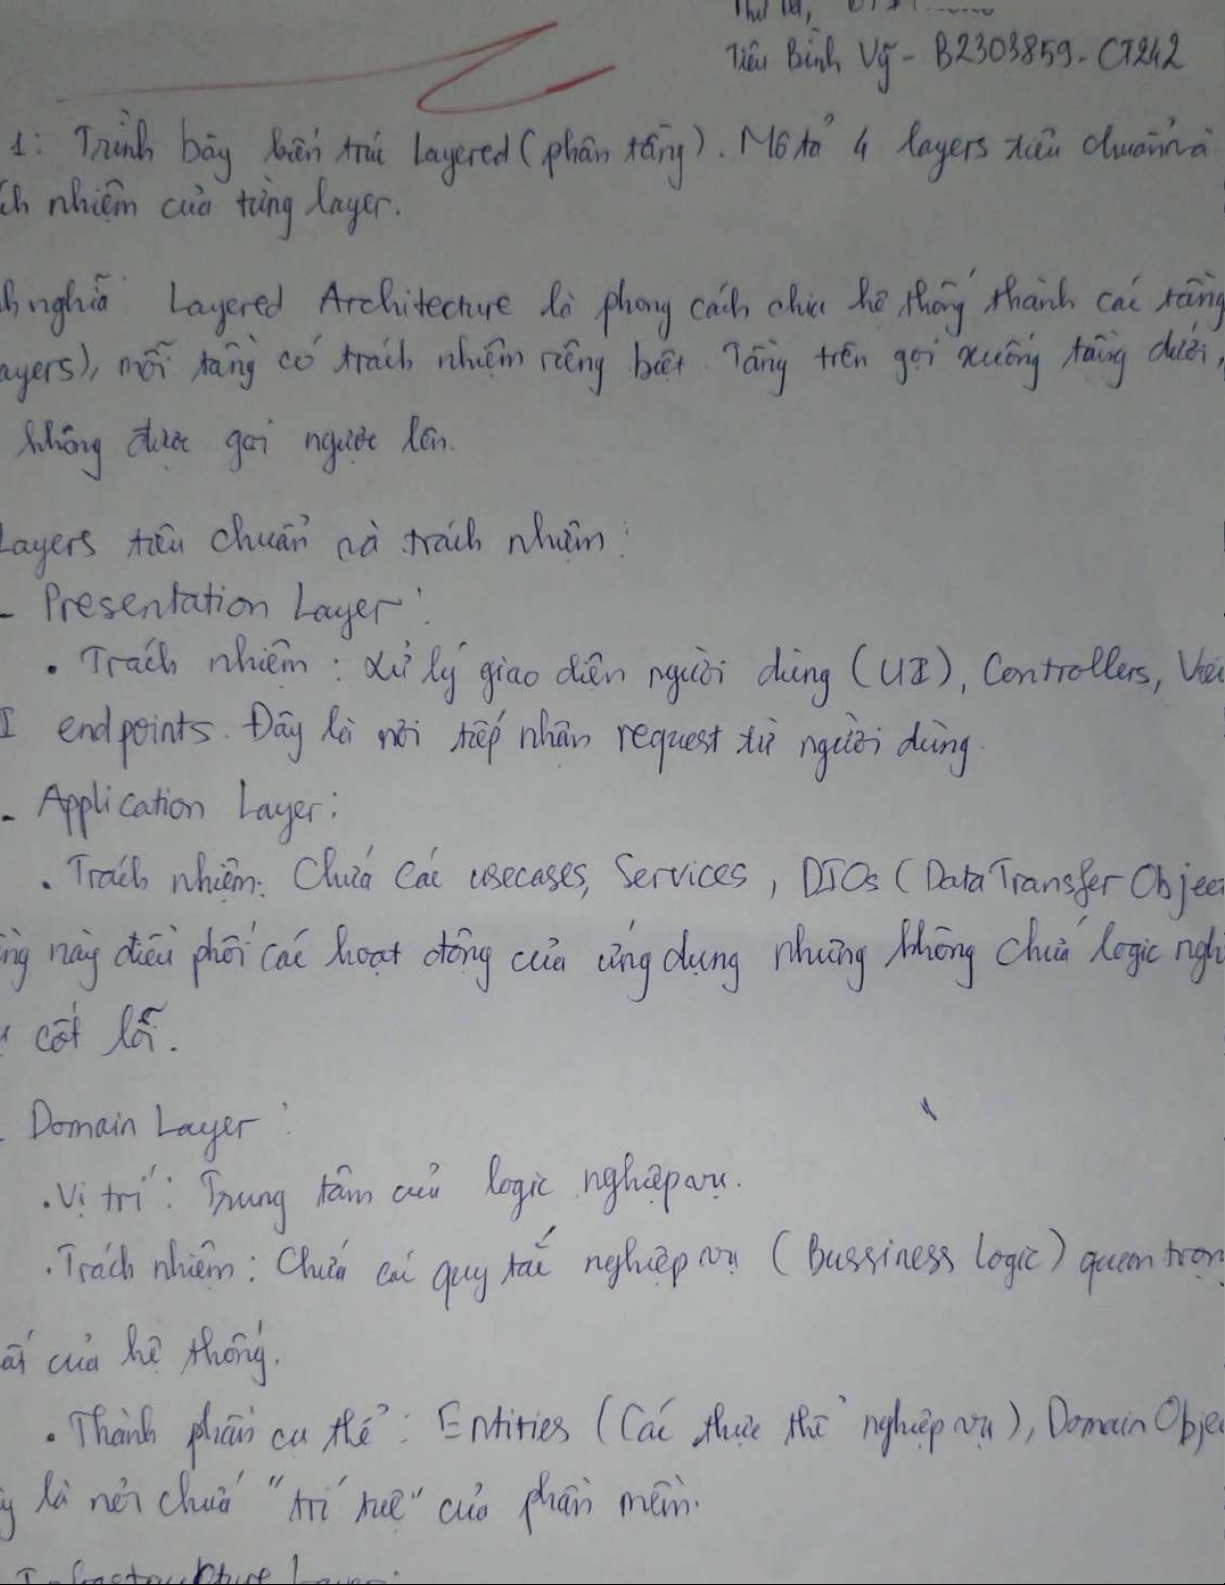 Tiêu Bình Vỹ - B2303859 - CT242
1: Trình bày kiến trúc Layered (phân tầng). Mô tả 4 layers tiêu chuẩn và
ch nhiệm của từng layer.
h nghĩa Layered Architecture là phong cách chia hệ thống thành các tầng
ayers), mỗi tầng có trách nhiệm riêng biệt. Tầng trên gọi xuống tầng dưới,
không được gọi ngược lên.
Layers tiêu chuẩn và trách nhiệm:
- Presentation Layer:
• Trách nhiệm: Xử lý giao diện người dùng (UI), Controllers, Vie
I endpoints. Đây là nơi tiếp nhận request từ người dùng.
- Application Layer:
• Trách nhiệm: Chứa các usecases, Services, DTOs (Data Transfer Objec
ng này điều phối các hoạt động của ứng dụng nhưng không chứa logic ngh
cốt lõi.
- Domain Layer:
• Vị trí: Trung tâm của logic nghiệp vụ.
• Trách nhiệm: Chứa các quy tắc nghiệp vụ (Bussiness Logic) quan trọn
ất của hệ thống.
• Thành phần cụ thể: Entities (Các thực thể nghiệp vụ), Domain Obje
y là nơi chứa "trí tuệ" của phần mềm.
Infrastructure Layer: